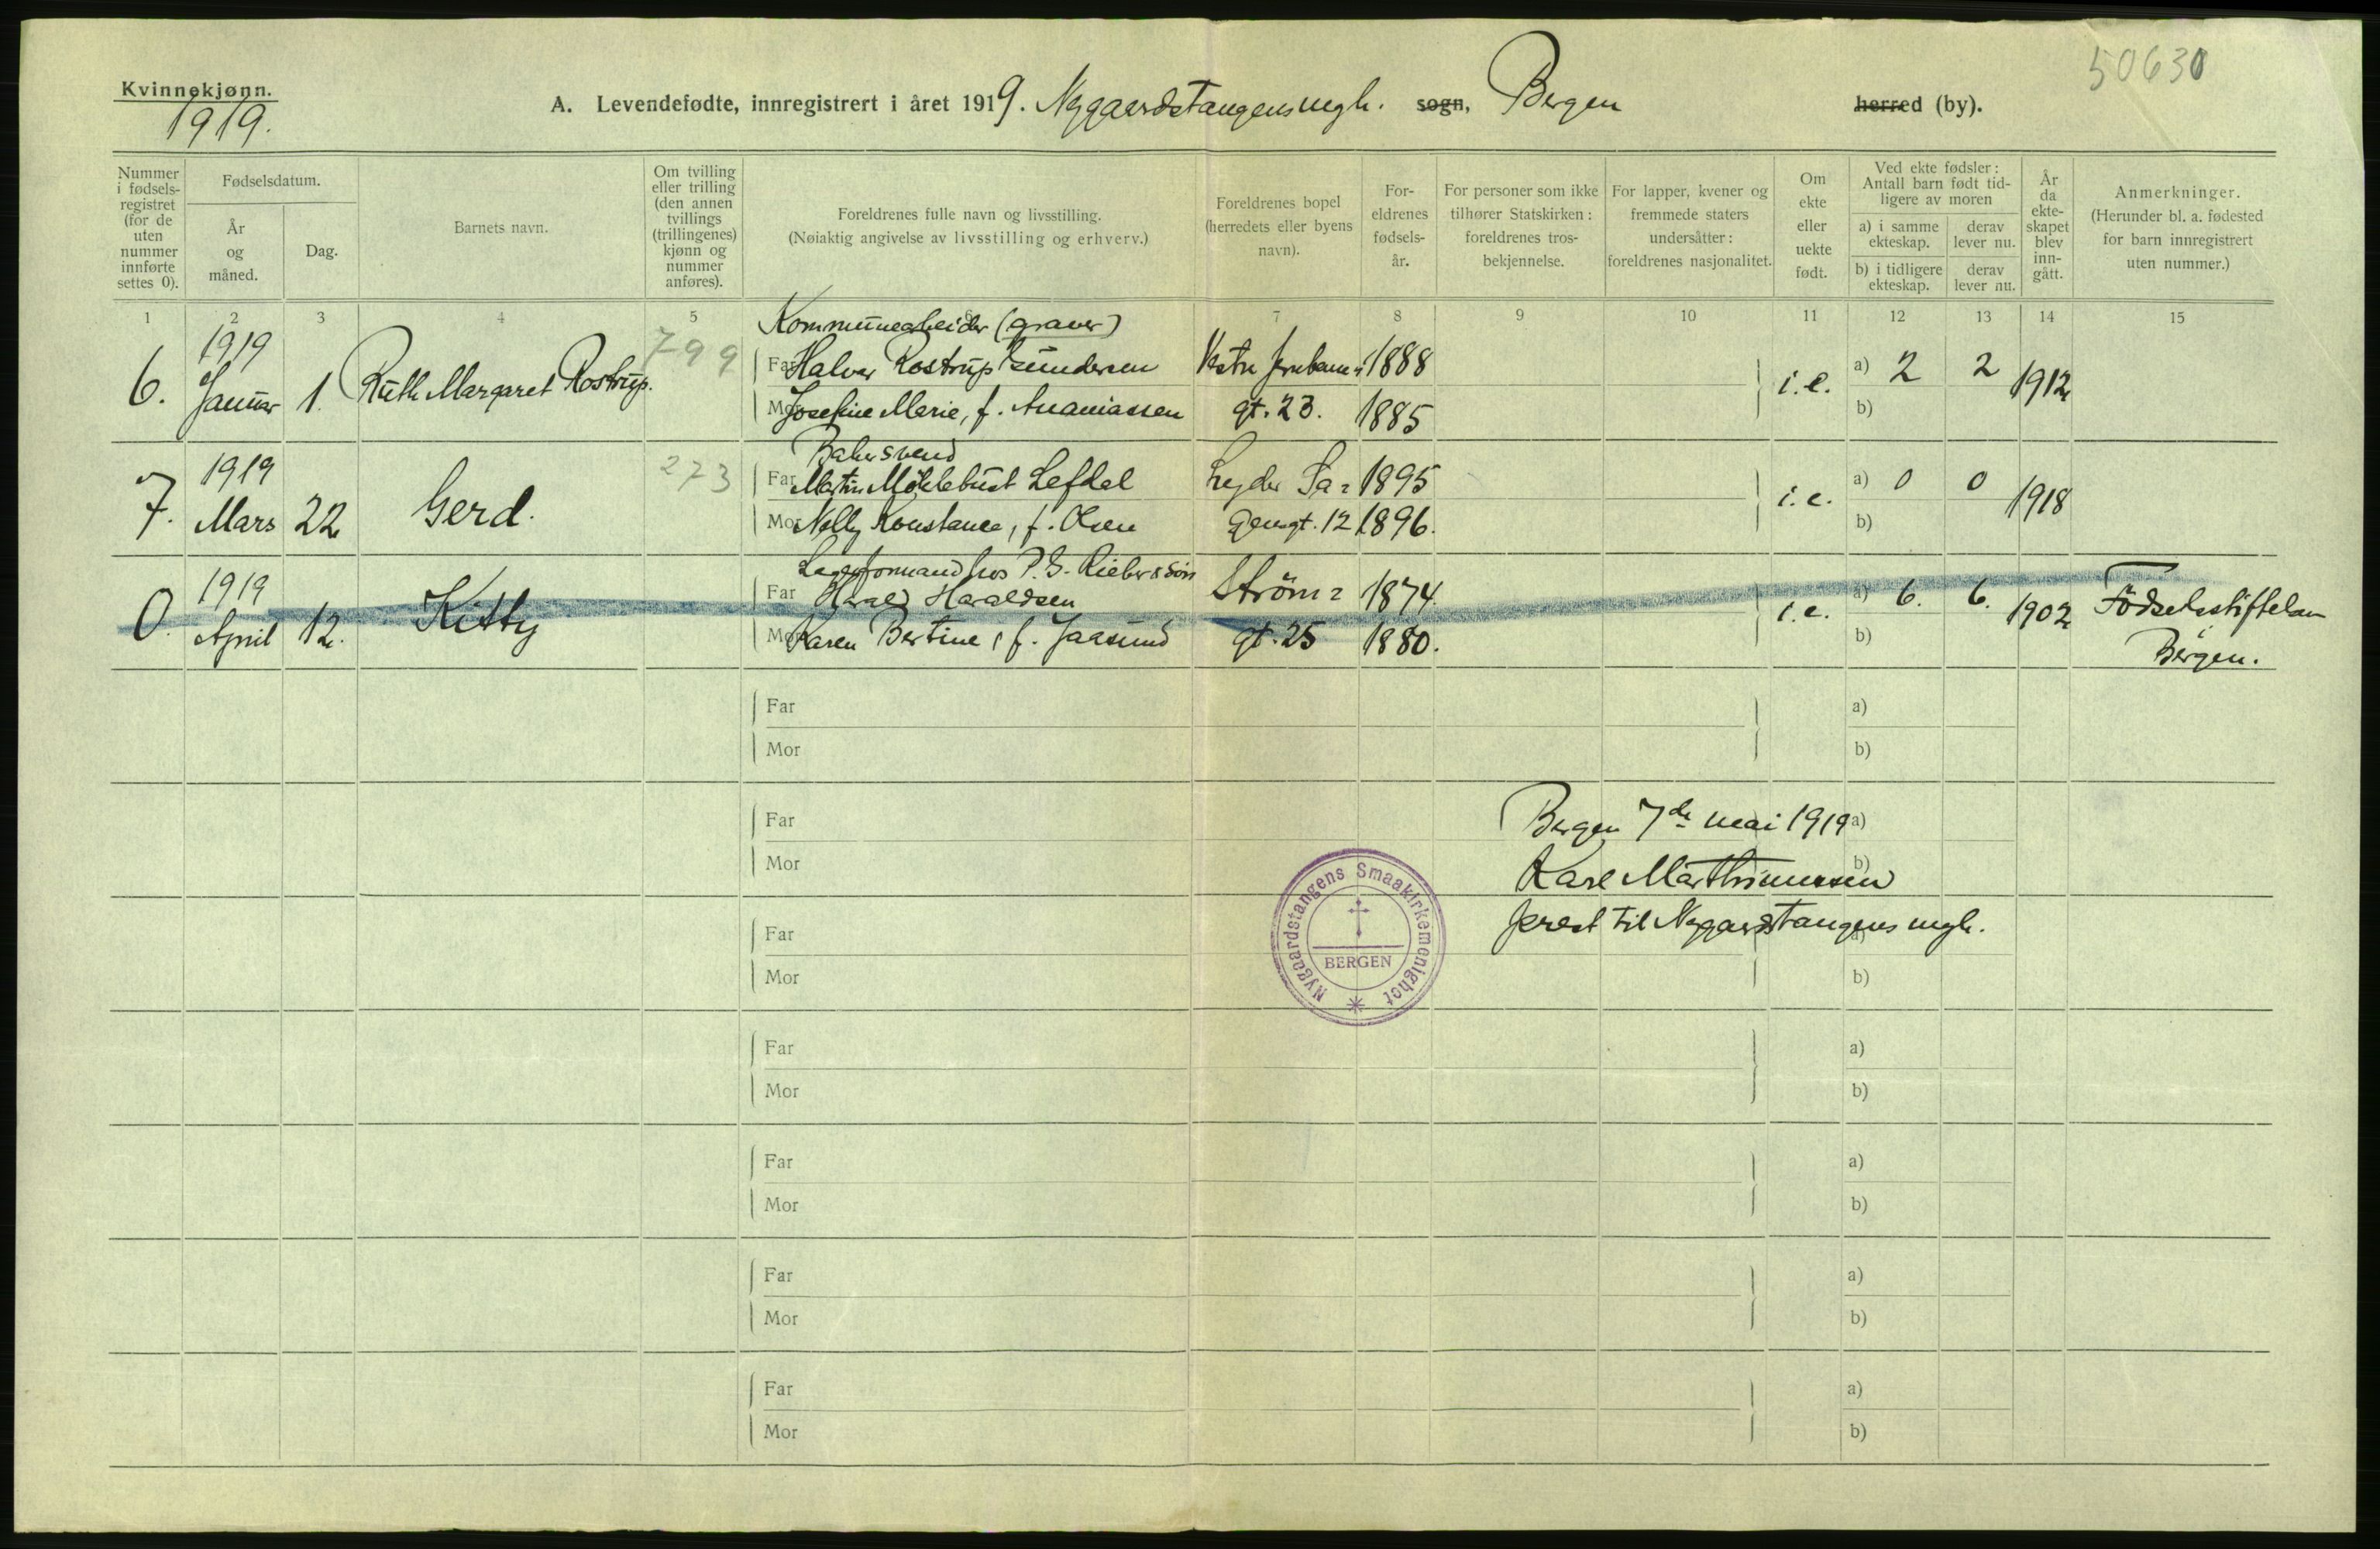 50630
Kvinnekjønn.
1919.
A. Levendefødte, innregistrert i året 1919. Nygaardstangens mgh. sogn, Bergen herred (by).
Nummer i fødsels-registret (for de uten nummer innførte settes 0).
Fødselsdatum.
År og måned.
Dag.
Barnets navn.
Om tvilling eller trilling (den annen tvillings (trillingenes) kjønn og nummer anføres).
Foreldrenes fulle navn og livsstilling.
(Nøiaktig angivelse av livsstilling og erhverv.)
Foreldrenes bopel (herredets eller byens navn).
For-eldrenes fødsels-år.
For personer som ikke tilhører Statskirken: foreldrenes tros-bekjennelse.
For lapper, kvener og fremmede staters undersåtter: foreldrenes nasjonalitet.
Om ekte eller uekte født.
Ved ekte fødsler: Antall barn født tid-ligere av moren
a) i samme ekteskap.
derav lever nu.
b) i tidligere ekteskap.
derav lever nu.
År da ekte-skapet blev inn-gått.
Anmerkninger.
(Herunder bl. a. fødested for barn innregistrert uten nummer.)
1 2 3 4 5 6 7 8 9 10 11 12 13 14 15
Kommunearbeider (graver)
6. 1919 Januar 1. Ruth Margaret Rostrup. 799
Far Halvor Rostrup Gundersen Vestre Jernbane= 1888
Mor Josefine Marie, f. Ananiassen gt. 23. 1885
i.e. a) 2 2 1912
b)
Bakersvend
7. 1919 Mars 22 Gerd. 273
Far Martin Möklebust Lefdal Lyder Sa= 1895
Mor Nelly Konstance, f. Olsen gensgt. 12 1896.
i.e. a) 0 0 1918
b)
Lagerformand hos P. G. Rieber & Søn
0. 1919 April 12. Kitty
Far Harald Haraldsen Ström= 1874.
Mor Karen Bertine, f. Jaasund gt. 25 1880.
i.e. a) 6. 6. 1902 Födselsstiftelsen
b) Bergen.
Far a)
Mor b)
Far a)
Mor b)
Bergen 7de mai 1919
Karl Marthinussen
prest til Nygaardstangens mgh.
Nygaardstangens Smaakirkemenighet
BERGEN
Far a)
Mor b)
Far a)
Mor b)
Far a)
Mor b)
Far a)
Mor b)
Far a)
Mor b)